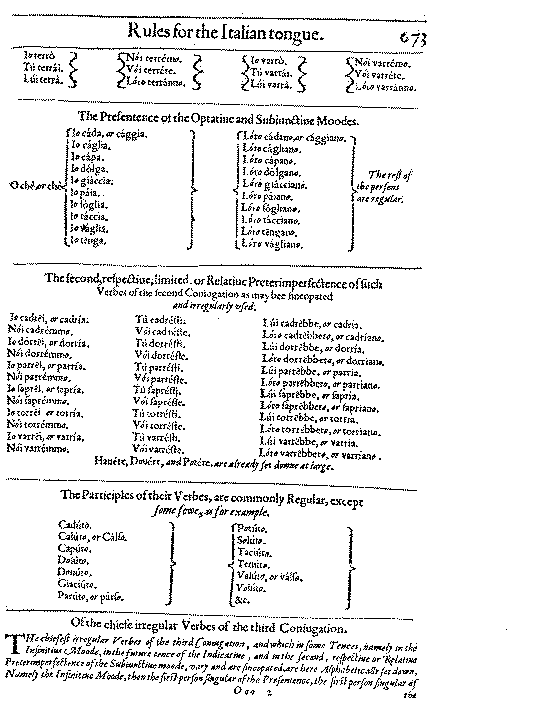 Rules for the Italian tongue. 673
Io terrò. Nói terrémo. Io varrò. Nói varrémo.
Tú terrái. Vói terréte. Tú varrái. Vói varréte.
Lúi terrá. Lóro terránno. Lúi varrá. Lóro varránno.
The Presentence of the Optatiue and Subiunctiue Moodes.
Io cáda, or cággia. Lóro cádano, or cággiano.
Io cáglia. Lóro cágliano.
Io cápa. Lóro cápano.
Io dólga. Lóro dólgano. The rest of
O chè, or chè Io giáccia. Lóro giácciano. the persons
Io páia. Lóro páiano. are regular.
Io sóglia. Lóro sógliano.
Io táccia. Lóro tácciano.
Io váglia. Lóro tèngano.
Io tènga. Lóro vágliano.
The second, respectiue, limited. or Relatiue Preterimperfectence of such
Verbes of the second Coniogation as may bee sincopated
and irregularly vsed.
Io cadrèi, or cadría. Tú cadrésti. Lúi cadrèbbe, or cadría.
Nói cadrémmo. Vói cadréste. Lóro cadrèbbero, or cadríano.
Io dorrèi, or dorría. Tú dorrésti. Lúi dorrèbbe, or dorría.
Nói dorrémmo. Vói dorréste. Lóro dorrèbbero, or dorríano.
Io parrèi, or parría. Tú parrésti. Lúi parrèbbe, or parría.
Nói parrémmo. Vói parréste. Lóro parrèbbero, or parríano.
Io saprèi, or sapría. Tú saprésti. Lúi saprèbbe, or sapría.
Nói saprémmo. Vói sapréste. Lóro saprèbbero, or sapríano.
Io torrèi or torría. Tú torrésti. Lúi torrèbbe, or torría.
Nói torrémmo. Vói torréste. Lóro torrèbbero, or torríano.
Io varrèi, or varría. Tú varrésti. Lúi varrèbbe, or varría.
Nói varrémmo. Vói varréste. Lóro varrèbbero, or varríano.
Hauére, Douére, and Potére, are already set downe at large.
The Participles of their Verbes, are commonly Regular, except
some fewe, as for example.
Cadúto. Potúto.
Calúto, or Cálso. Solúto.
Capúto. Taciúto.
Dolúto. Tenúto.
Douúto. Valúto, or válso.
Giaciúto. Volúto.
Parúto, or párso. &c.
Of the chiefe irregular Verbes of the third Coniugation.
THe chiefest irregular Verbes of the third Coniugation, and which in some Tences, namely in the
Infinitiue Moode, in the future tence of the Indicatiue, and in the second, respectiue or Relatiue
Preterimperfectence of the Subiunctiue moode, vary and are sincopated, are here Alphabetically set down,
Namely the Infinitiue Moode, then the first person singular of the Presentence, the first person singular of
Ooo 2 the